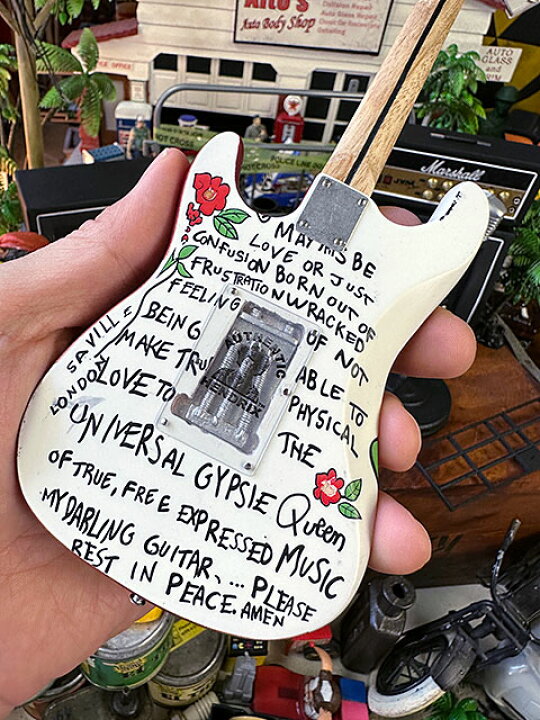 Alto's
Auto Body Shop
Collision Repair
Auto Glass Repair
AUTO
GLASS
POLICE LINE DO
NOT CROSS
Marshall
MAY THIS BE
LOVE OR JUST
CONFUSION BORN OUT OF
FRUSTRATION WRACKED
FEELING OF NOT
BEING ABLE TO
MAKE TRU PHYSICAL
LOVE TO THE
UNIVERSAL GYPSIE Queen
OF TRUE, FREE EXPRESSED MUSIC
MY DARLING GUITAR, ... PLEASE
REST IN PEACE. AMEN
SAVILLE
LONDON
AUTHENTIC
HENDRIX